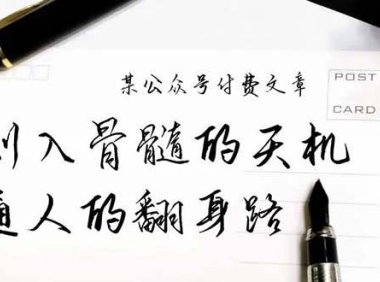 某公众号付费文章
POST
CARD
入骨髓的天机
人的翻身路